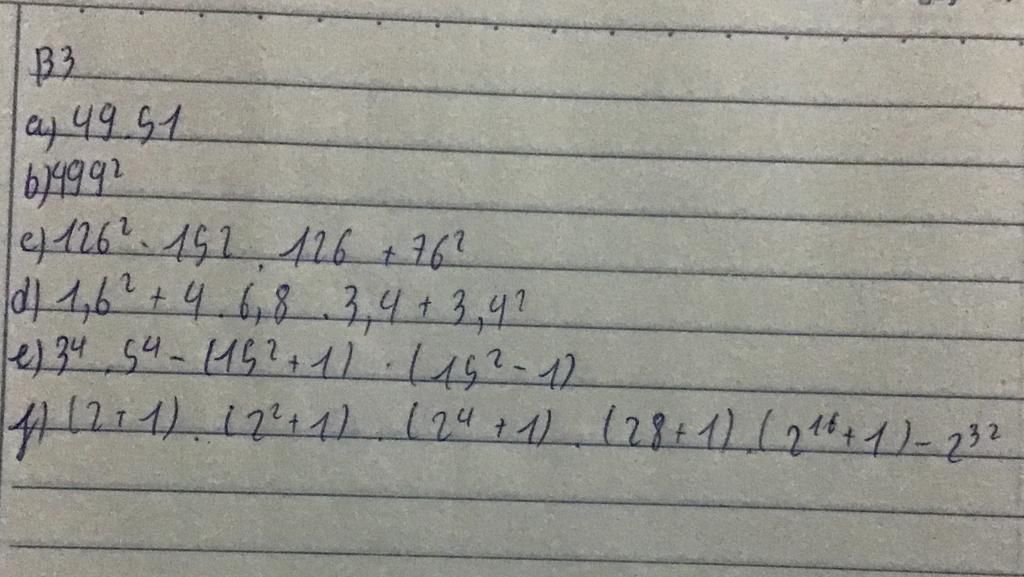 B3
a) 49.51
b) 499²
c) 126² . 152 . 126 + 76²
d) 1,6² + 4 . 6,8 . 3,4 + 3,4²
e) 3⁴ . 5⁴ - (15² + 1) . (15² - 1)
f) (2 + 1) . (2² + 1) . (2⁴ + 1) . (28 + 1) . (2¹⁶ + 1) - 2³²